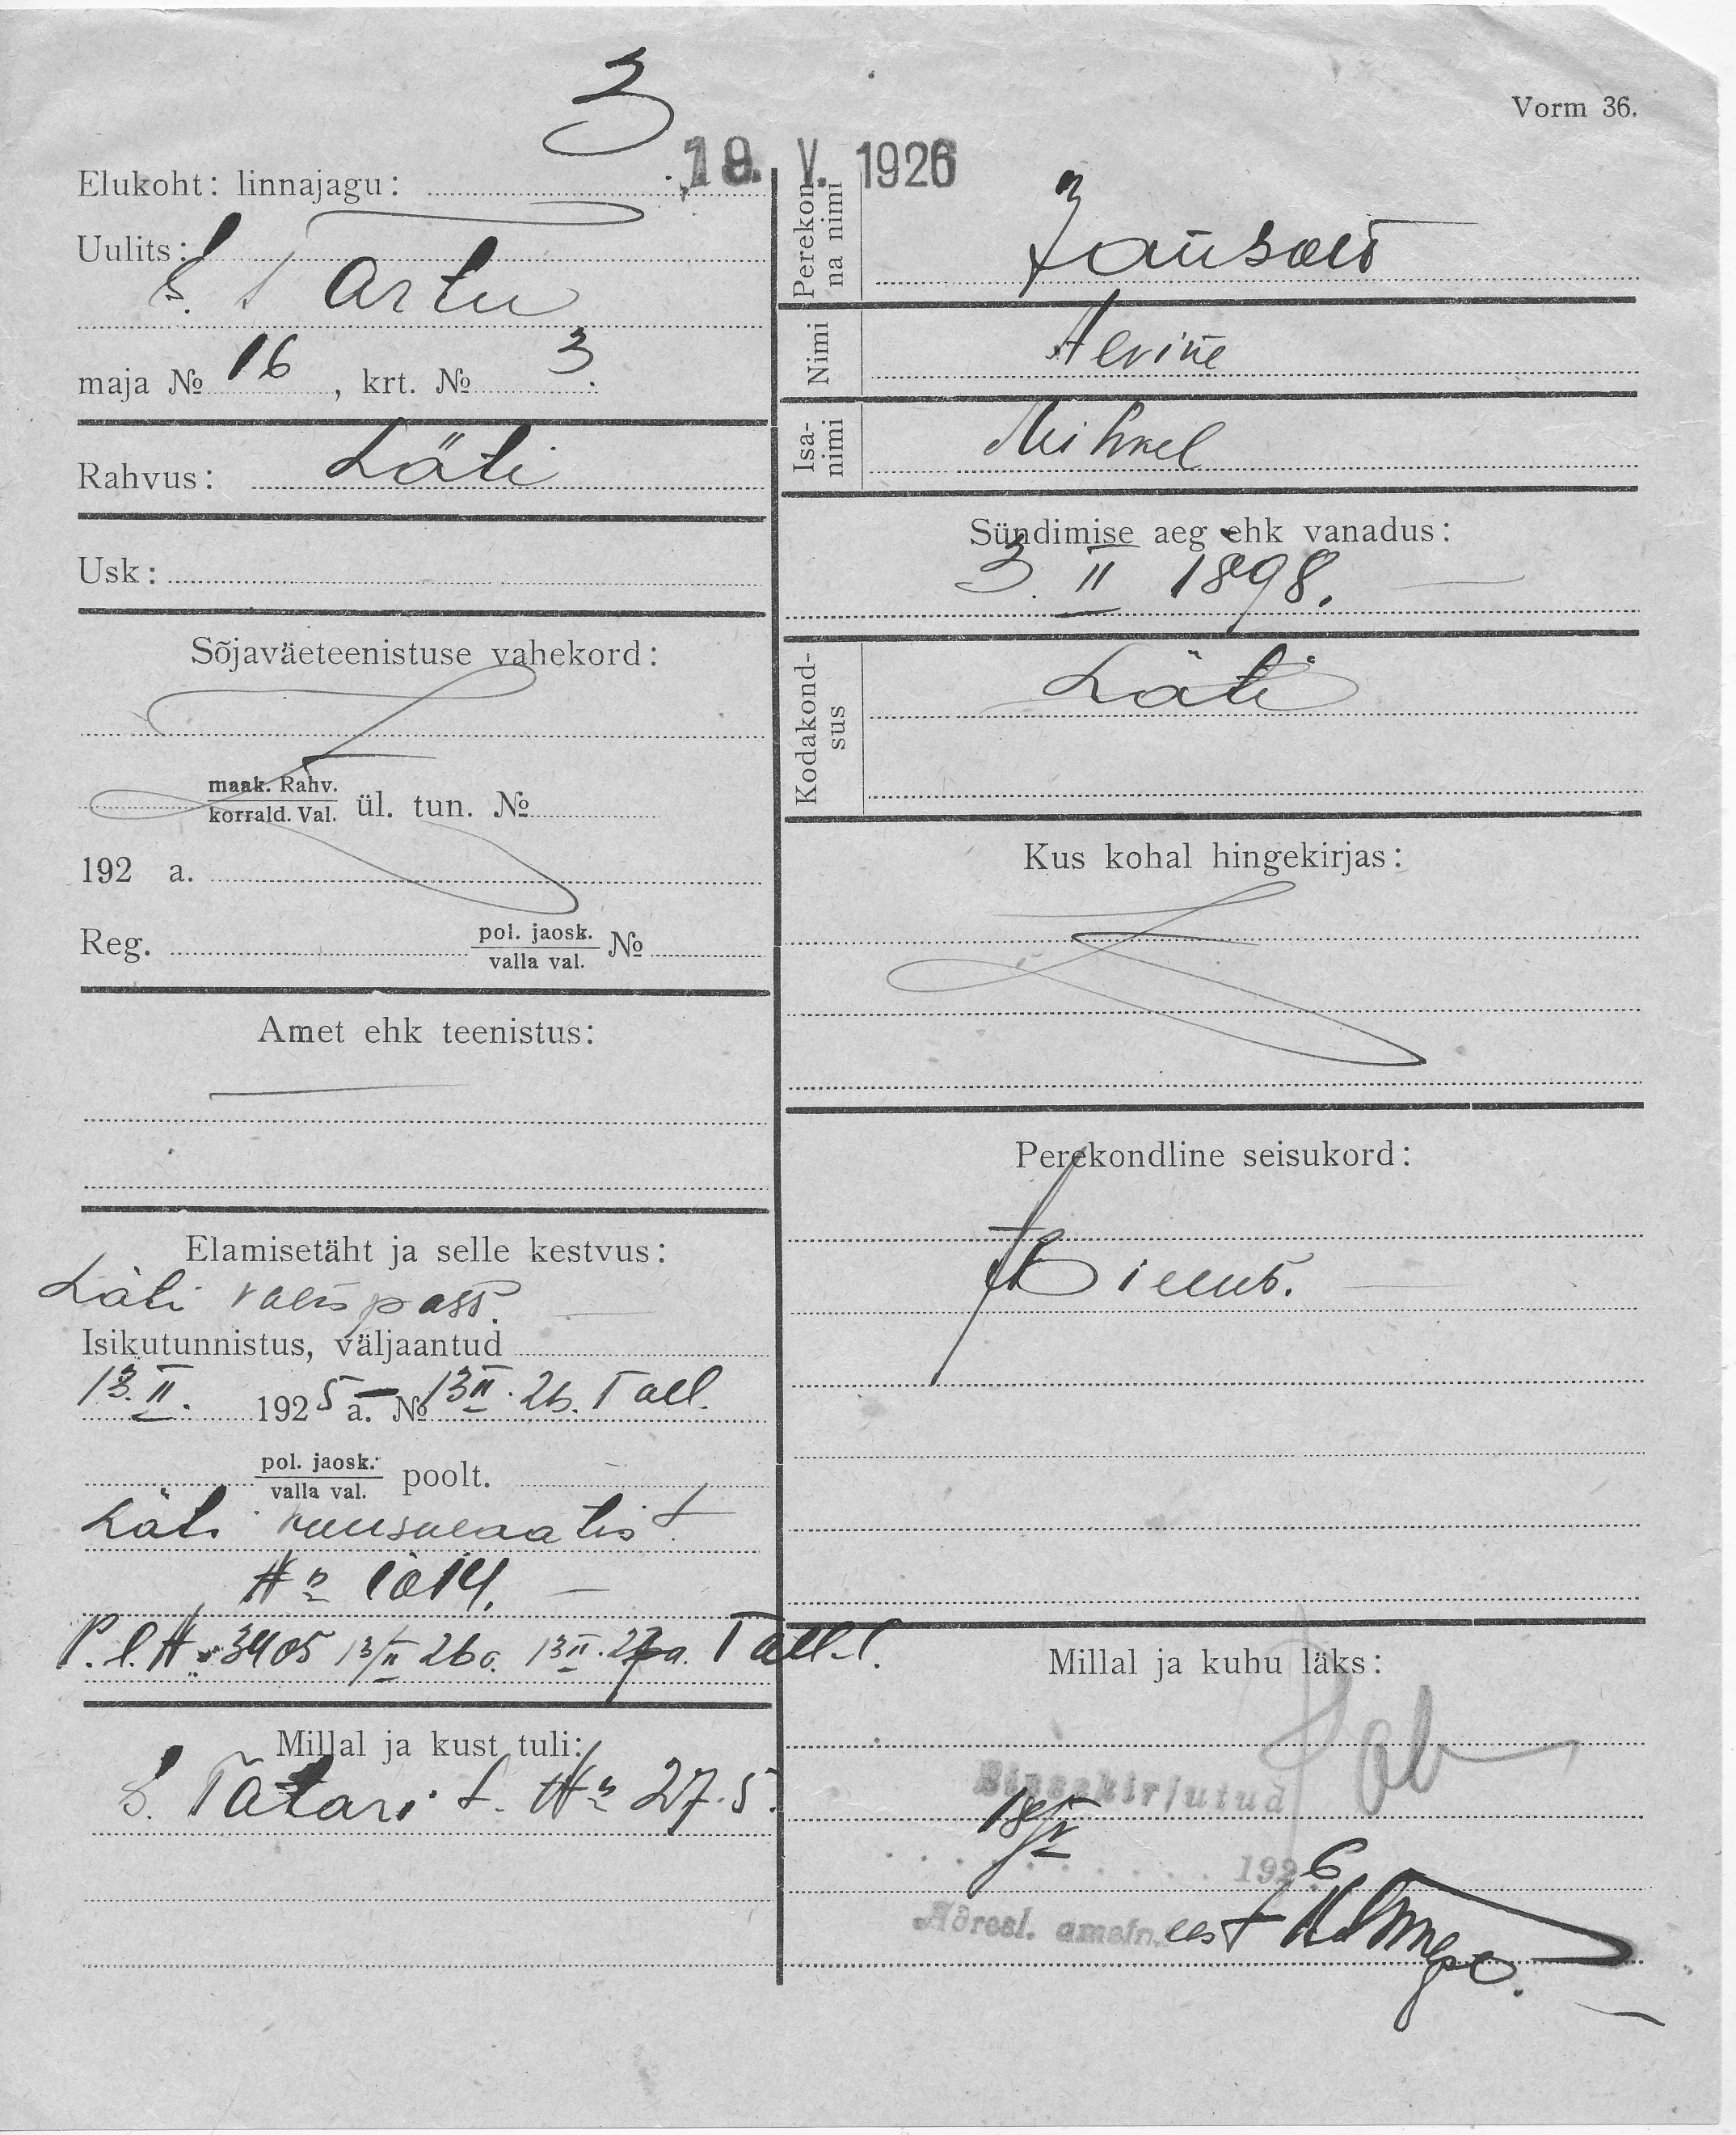 3
Vorm 36.
18. V. 1926
Elukoht: linnajagu:
Uulits:
S. Tartu
maja № 16, krt. № 3.
Rahvus: Läti
Usk:
Sõjaväeteenistuse vahekord:
maak. Rahv.
korrald. Val. ül. tun. №
192 a.
Reg. pol. jaosk. №
valla val.
Amet ehk teenistus:
Elamisetäht ja selle kestvus:
Läti välispass.
Isikutunnistus, väljaantud
13. II. 1925 a. № 13 II. 26. Tall.
pol. jaosk.
valla val. poolt.
Läti konsulaadis
№ 1014.
P. l. № 3405 13/II 26 a. 13 II. 27 a. Tall. l.
Millal ja kust tuli:
S. Tatari t. № 27-5.
Perekonna nimi
Jansons
Nimi Alvine
Isanimi Mihkel
Sündimise aeg ehk vanadus:
3. II 1898.
Kodakondsus
Läti
Kus kohal hingekirjas:
Perekondline seisukord:
Millal ja kuhu läks:
Sissekirjutud
18/V
1926
Adresl. ametn. eest